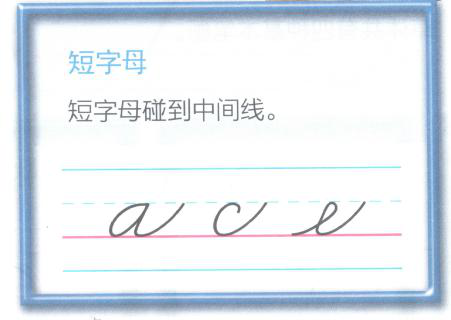 短字母
短字母碰到中间线。
a c e